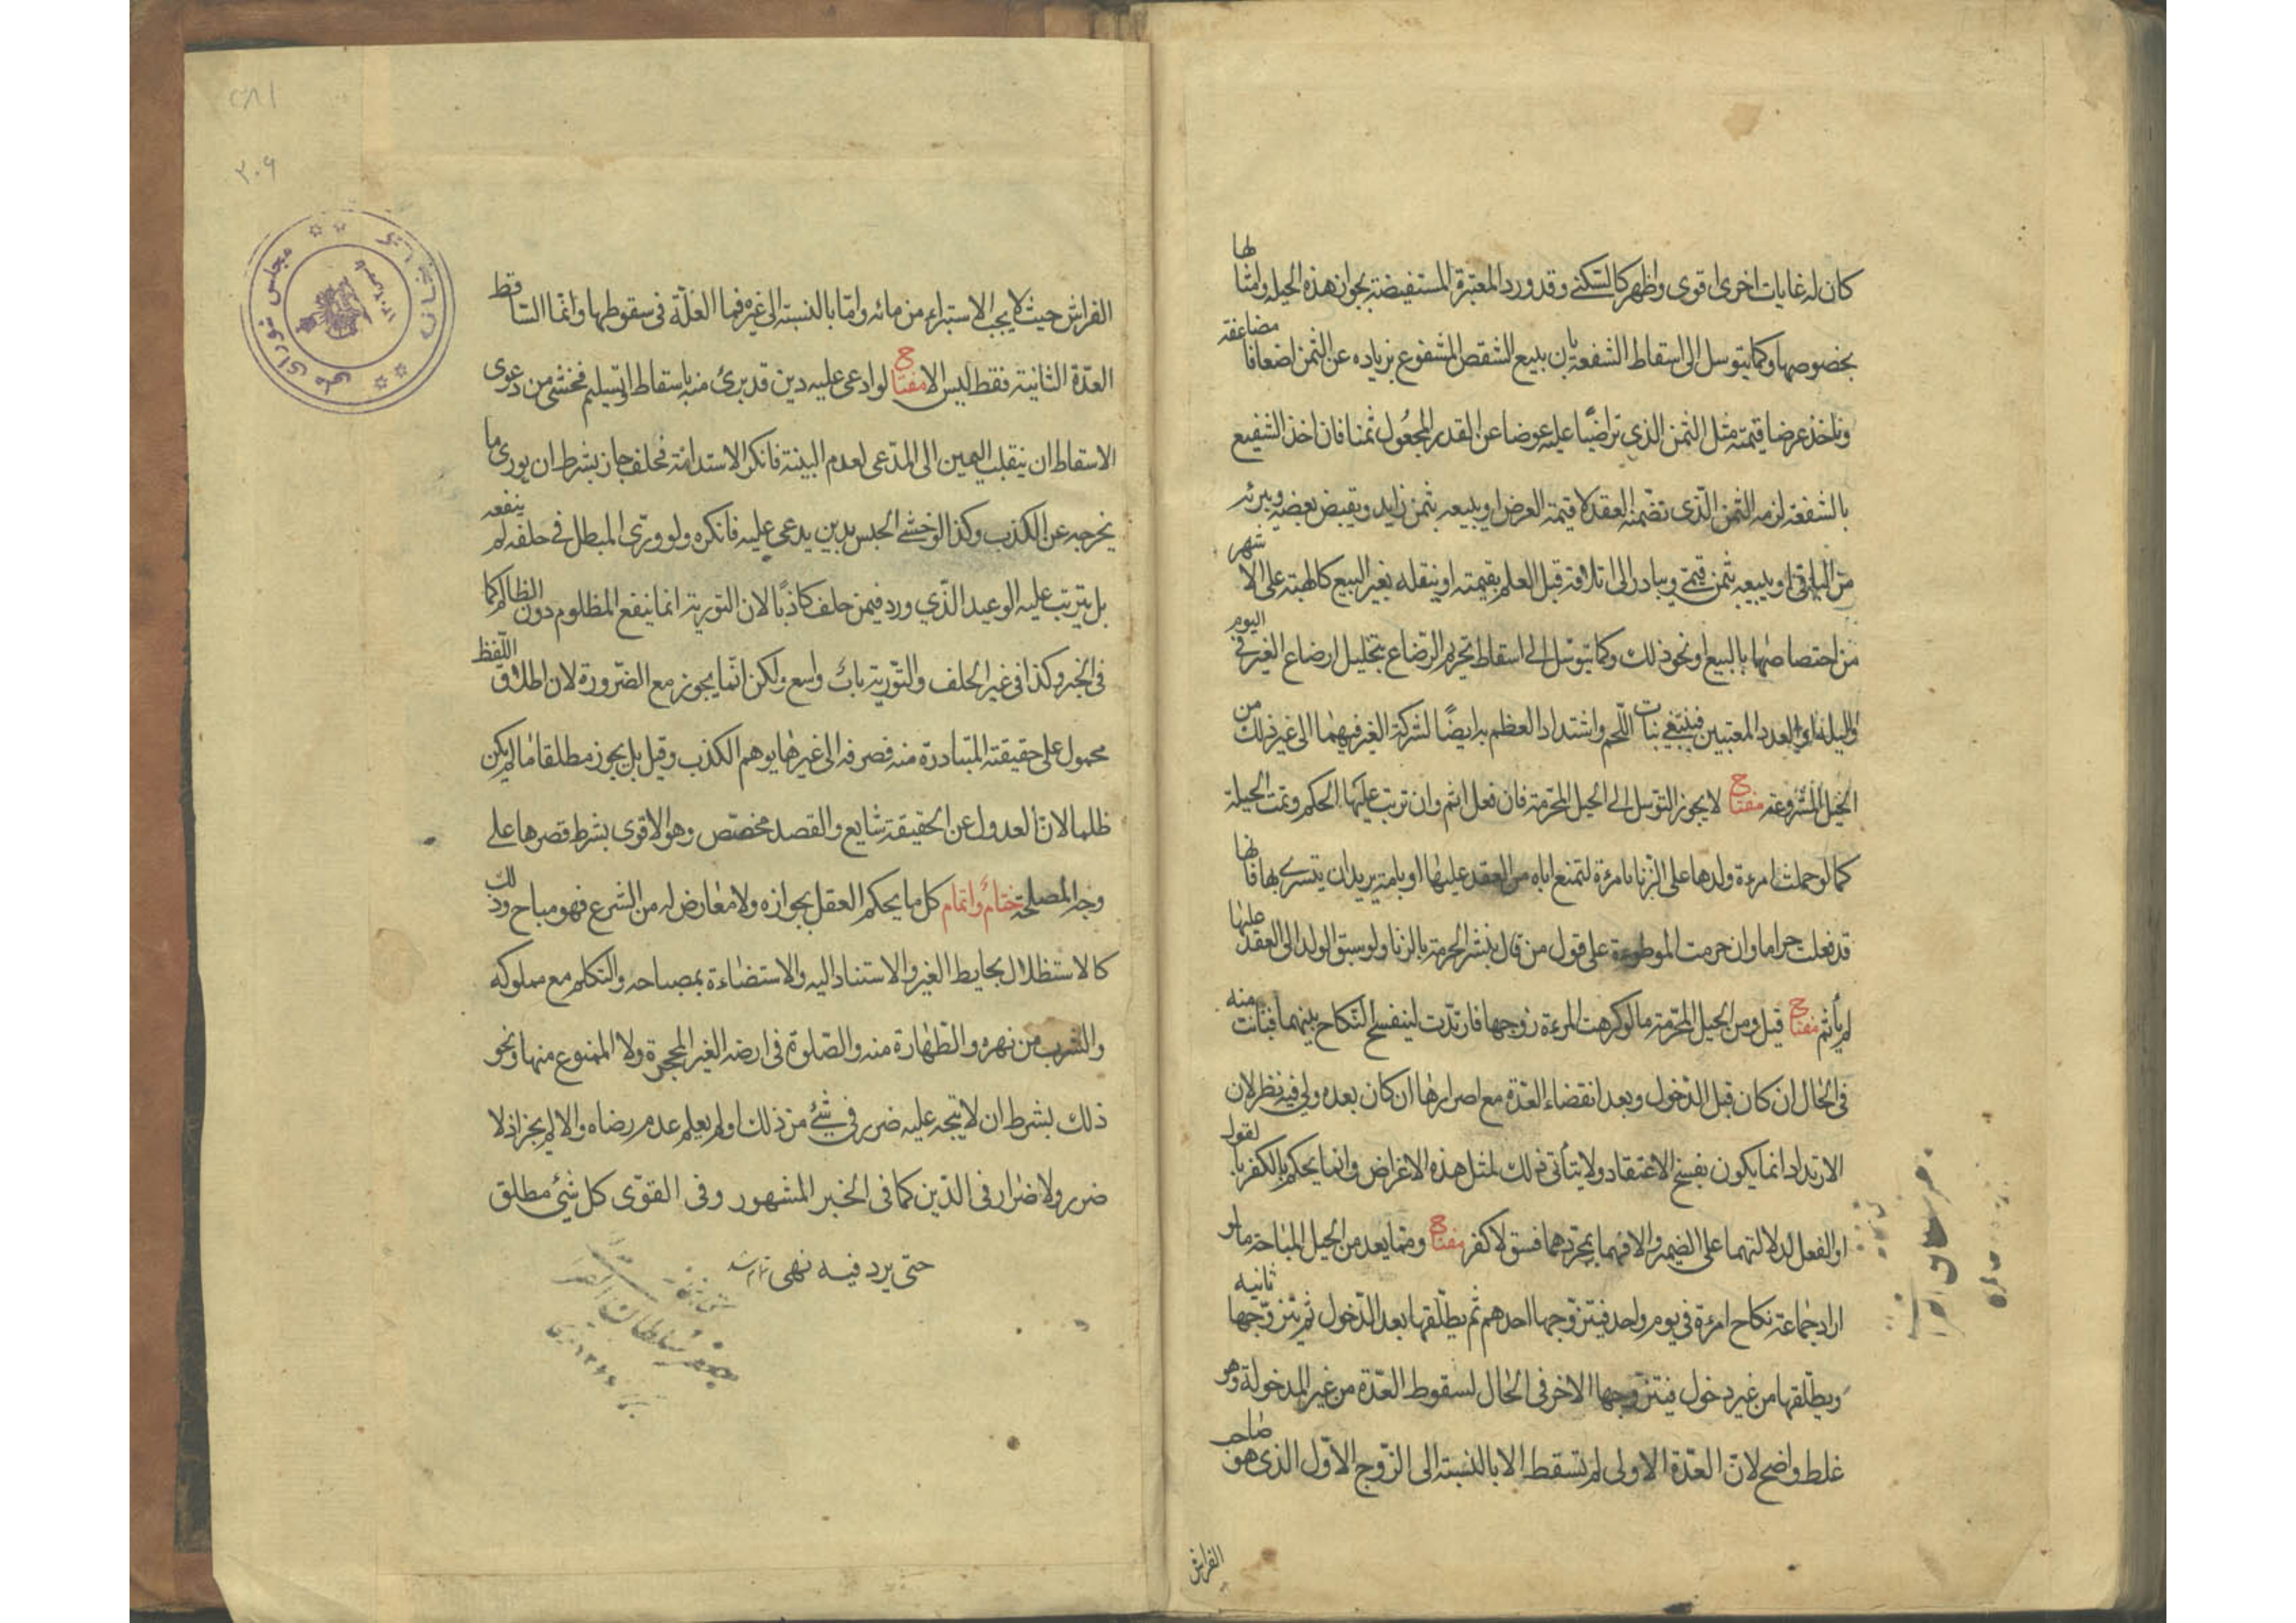 كان له غايات اخرى اقوى واظهر كالتسكنى وقد ورد المعتبرة المستفيضة بجواز هذه الحيلة وامثالها
بخصوصها وكما يتوسل الى اسقاط الشفعة بان يبيع الشقص المشفوع بزياده عن الثمن اضعافا مضاعفة
وياخذ عرضا قيمته مثل الثمن الذي تراضيا عليه عوضا عن القدر المجعول ثمنا فان اخذ الشفيع
بالشفعة لزمه الثمن الذى تضمنه العقد لا قيمة العرض او يبيعه بثمن زايد ويقبض بعضه ويبرئه
من الباقى او يبيعه بثمن قيمي ويبادر الى اتلافه قبل العلم بقيمته او ينقله بغير البيع كالهبة على الاشهر
من اختصاصها بالبيع او نحو ذلك وكما يتوسل الى اسقاط تحريم الرضاع بتخليل ارضاع الغير في اليوم
والليلة او العدد المعتبرين فينبغي نبات اللحم واشتداد العظم به ايضًا لشركة الغير فيهما الى غير ذلك من
الحيل المشروعة مفتاح لا يجوز التوسل الى الحيل المحرمة فان فعل اثم وان ترتب عليها الحكم وتمت الحيلة
كما لو حملت امرءة ولدها على الزنا بامرءة لتمنع اباه من العقد عليها او بامة يريد ان يتسرى بها فانها
قد فعلت حراما وان حرمت الموطوءة على قول من قال بنشر الحرمة بالزنا ولو سبق الولد الى العقد عليها
لم يأثم مفتاح قيل ومن الحيل المحرمة ما لو كرهت المرءة زوجها فارتدت لينفسخ النكاح بينهما فبانت منه
فى الحال ان كان قبل الدخول وبعد انقضاء العدة مع اصرارها ان كان بعده ولى فيه نظر لان
الارتداد انما يكون بفسخ الاعتقاد ولا يتأتى ذلك لمثل هذه الاغراض وانما يحكم بالكفر بالقول
او الفعل لدلالتهما على الضمير والا فهما بمجردهما فسق لا كفر مفتاح ومما يعد من الحيل المباحة ما لو
اراد جماعة نكاح امرءة فى يوم واحد فيتزوجها احدهم ثم يطلقها بعد الدخول ثم يتزوجها ثانيه
ويطلقها من غير دخول فيتزوجها الاخر فى الحال لسقوط العدة من غير المدخولة وهو
غلط واضح لان العدة الاولى لم تسقط الا بالنسبة الى الزوج الاول الذى هو صاحب
الفراش
الفراش حيث لا يجب الاستبراء من مائه واما بالنسبة الى غيره فما العلة فى سقوطها وانما الساقط
العدة الثانية فقط ليس الا مفتاح لو ادعى عليه دين قد برئ منه باسقاط او تسليم فخشى من دعوى
الاسقاط ان ينقلب اليمين الى المدعى لعدم البينة فانكر الاستدانة فحلف جاز بشرط ان يورى ما
يخرجه عن الكذب وكذا لو خشى الحبس بدين يدعى عليه فانكره ولو ورّى المبطل فى حلفه لم ينفعه
بل يترتب عليه الوعيد الذي ورد فيمن حلف كاذبًا لان التورية انما ينفع المظلوم دون الظالم كما
فى الخبر وكذا فى غير الحلف والتورية باب واسع ولكن انما يجوز مع الضرورة لان اطلاق اللفظ
محمول على حقيقته المتبادرة منه فصرفه الى غيرها يوهم الكذب وقيل بل يجوز مطلقا ما لم يكن
ظلما لان العدول عن الحقيقة شايع والقصد مخصص وهو الاقوى بشرط قصرها على
وجه المصلحة ختام واتمام كل ما يحكم العقل بجوازه ولا معارض له من الشرع فهو مباح وذلك
كالاستظلال بحايط الغير والاستناد اليه والاستضاءة بمصباحه والتكلم مع مملوكه
والشرب من نهره والطهارة منه والصلوة فى ارضه الغير المحجرة ولا الممنوع منها ونحو
ذلك بشرط ان لا يتجه عليه ضرر فى شئ من ذلك او لم يعلم عدم رضاه والا لم يجز اذ لا
ضرر ولا ضرار فى الدين كما فى الخبر المشهور وفى القوى كل شئ مطلق
حتى يرد فيه نهى تمام شد
مجلس شوراى ملى
٣٠٩